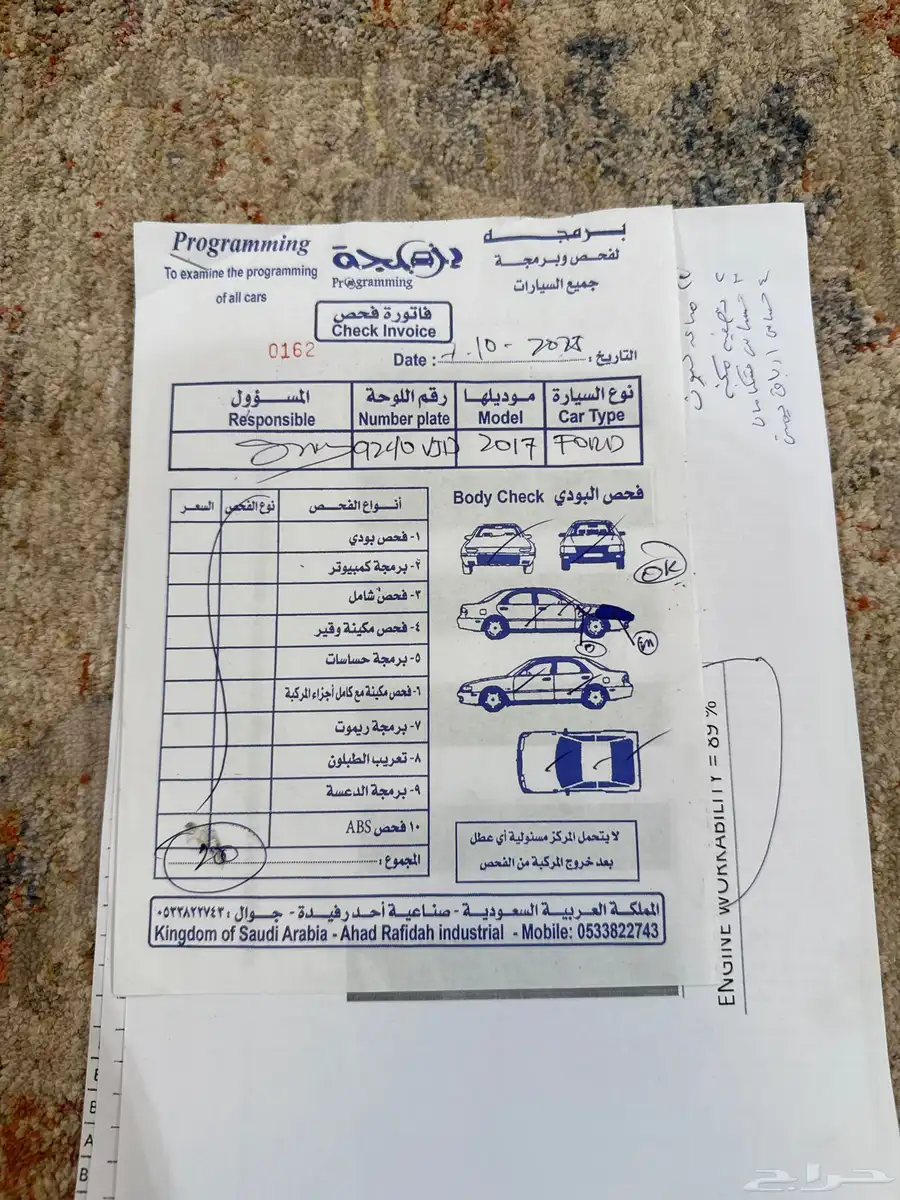 Programming
To examine the programming
of all cars
برمجة
Programming
برمجه
لفحص وبرمجة
جميع السيارات
فاتورة فحص
Check Invoice
0162
Date : التاريخ :
نوع السيارة موديلها رقم اللوحة المسؤول
Car Type Model Number plate Responsible
FORD 2017
Body Check فحص البودي
OK
أنواع الفحص نوع الفحص السعر
١- فحص بودي
٢- برمجة كمبيوتر
٣- فحص شامل
٤- فحص مكينة وقير
٥- برمجة حساسات
٦- فحص مكينة مع كامل أجزاء المركبة
٧- برمجة ريموت
٨- تعريب الطبلون
٩- برمجة الدعسة
١٠ فحص ABS
المجموع :
لا يتحمل المركز مسئولية أي عطل
بعد خروج المركبة من الفحص
المملكة العربية السعودية - صناعية أحد رفيدة - جوال : ٠٥٣٣٨٢٢٧٤٣
Kingdom of Saudi Arabia - Ahad Rafidah industrial - Mobile: 0533822743
ENGINE WORKABILITY = 89 %
B
A
B
حراج